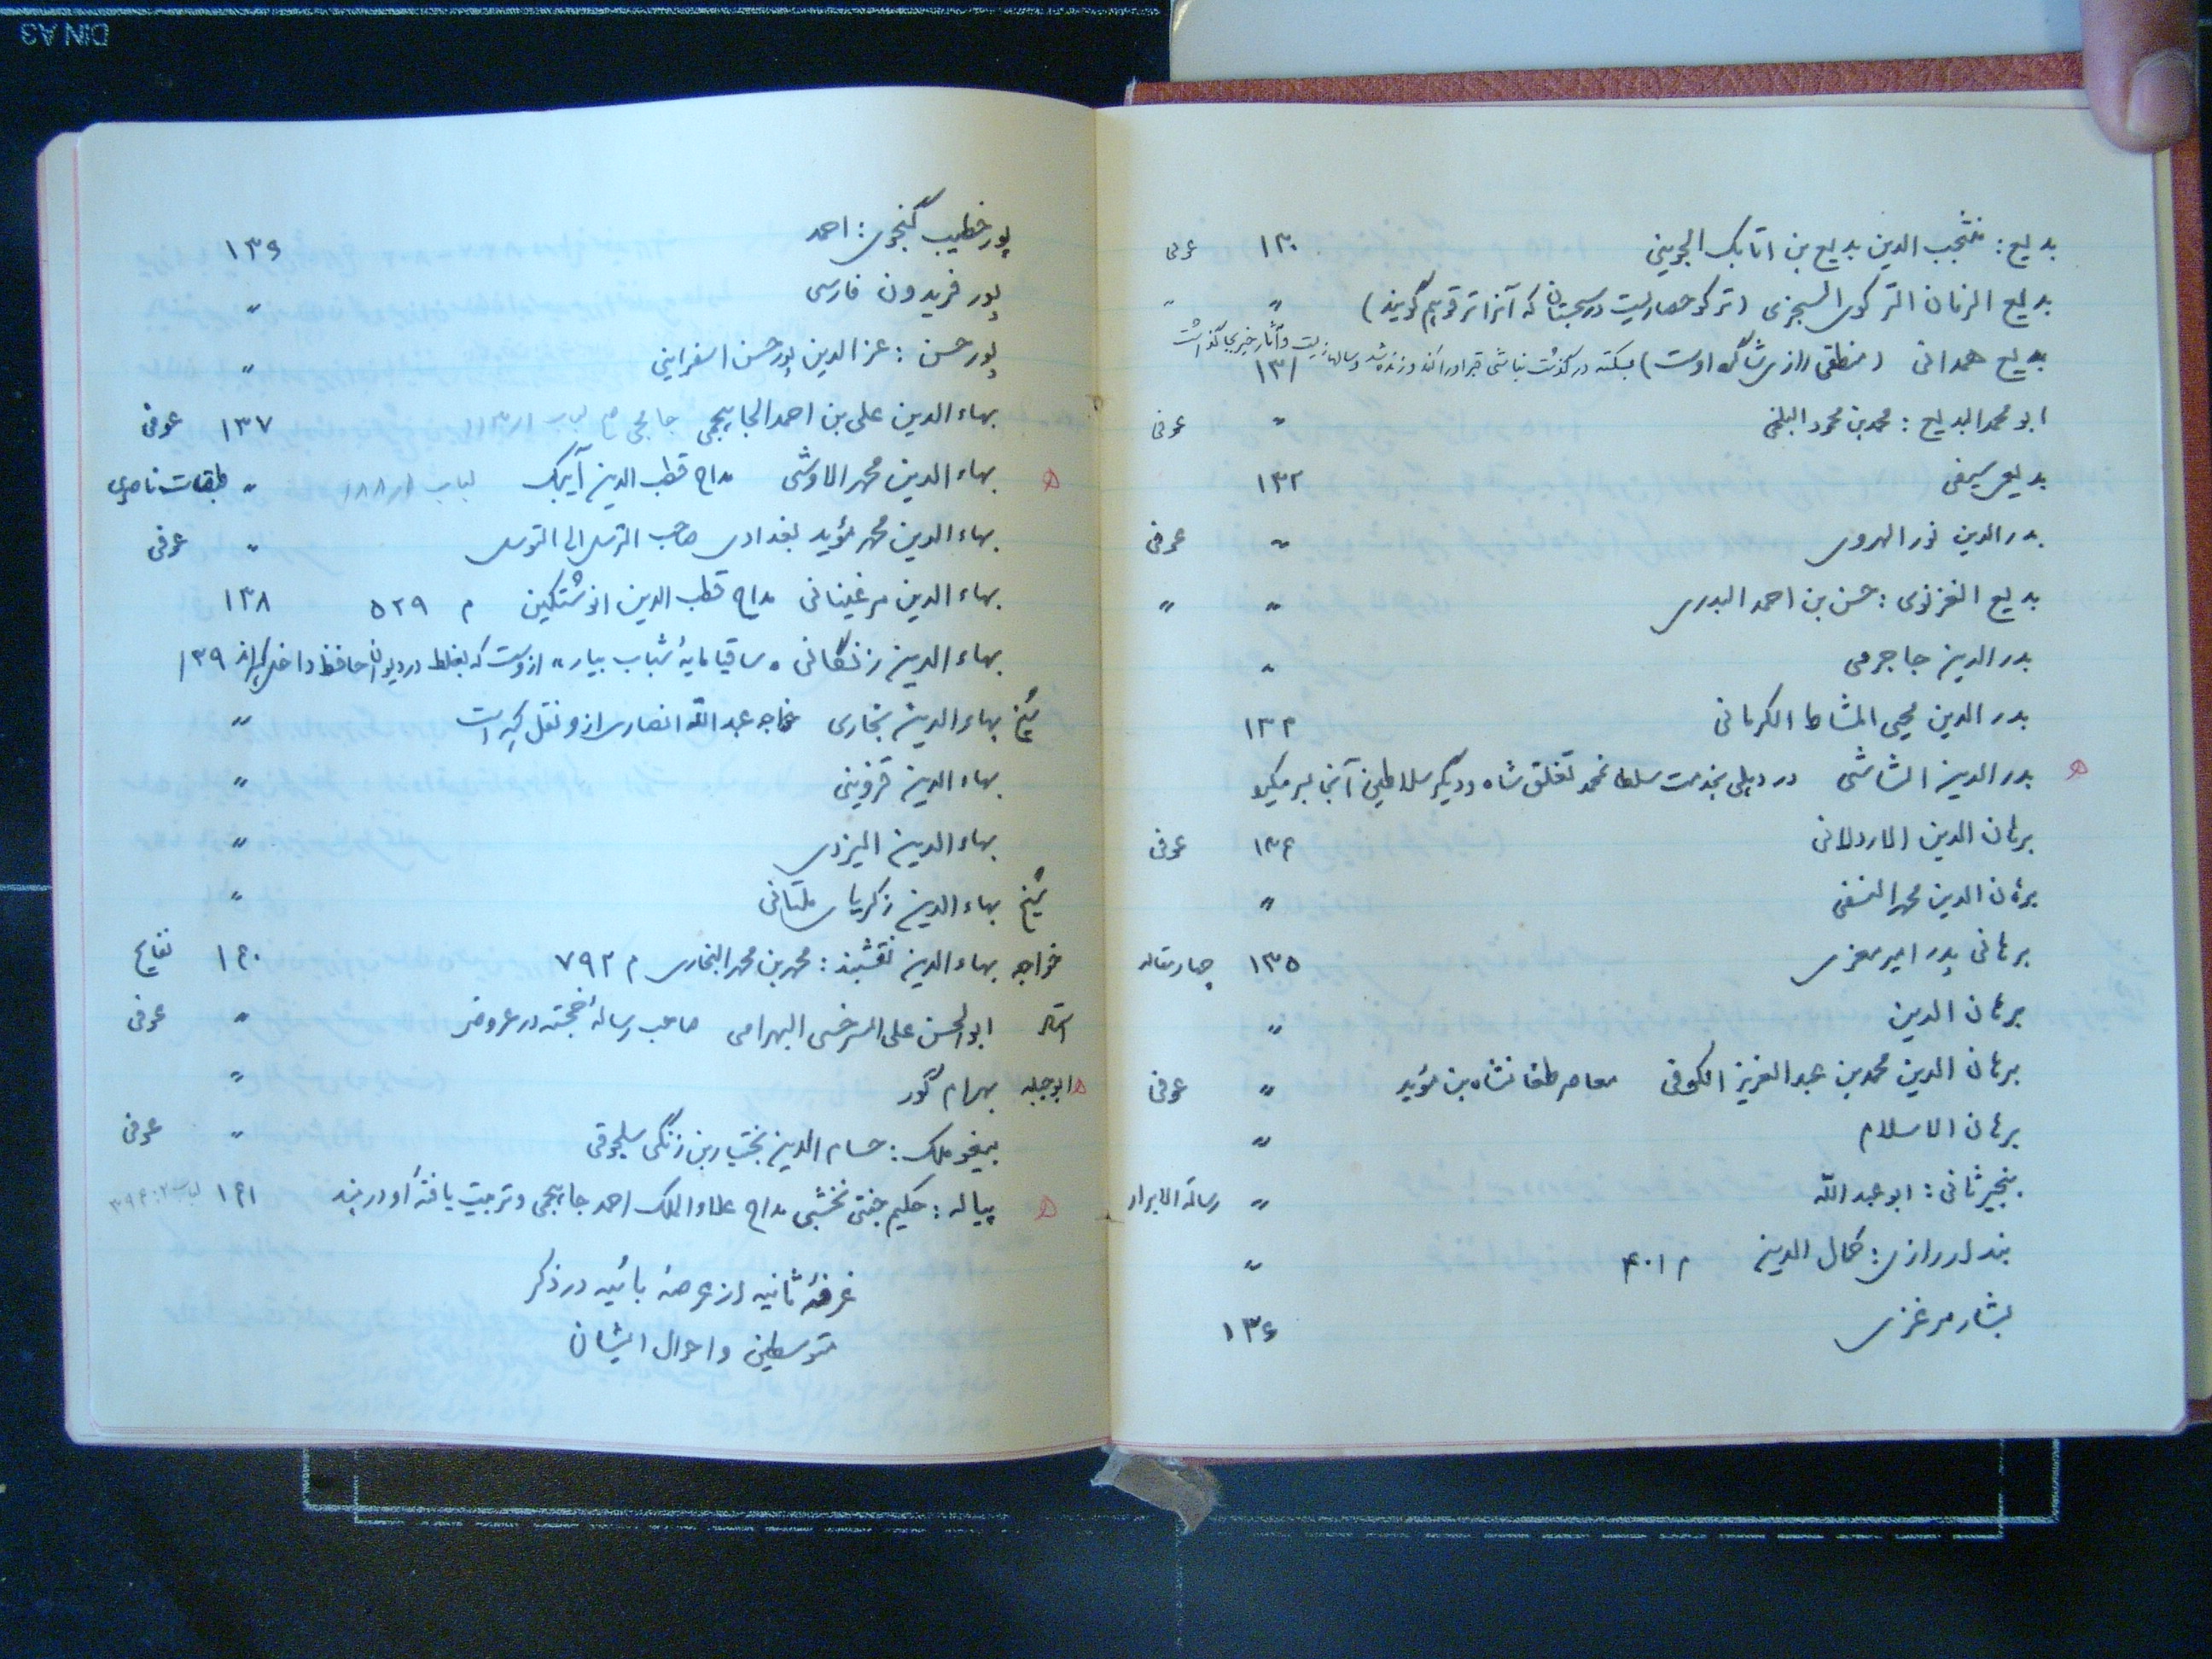 بدیع : منتجب الدین بدیع بن اتابک الجوینی ۱۳۰ عوفی
بدیع الزمان الترکوی السجزی (ترکو حصاریست در سجستان که آنرا ترقو هم گویند) " "
بدیع همدانی (منطقی رازی شاگرد اوست) بسکته درگذشت نباشی قبر اورا کند و زنده شد و سالها بزیست و آثار خیر بجا گذاشت ۱۳۱
ابو محمد البدیع : محمد بن محمود البلخی " عوفی
بدیعی سیفی ۱۳۲
بدرالدین نور الهروی " عوفی
بدیع الغزنوی : حسن بن احمد البدری " "
بدر الدین جاجرمی "
بدر الدین یحیی المشاط الکرمانی ۱۳۳
بدر الدین الشاشی در دهلی بخدمت سلطان محمد تغلق شاه و دیگر سلاطین آنجا بسر میکرد
برهان الدین الاردلانی ۱۳۴ عوفی
برهان الدین محمد النسفی "
برهانی پدر امیر معزی ۱۳۵ چهار مقاله
برهان الدین "
برهان الدین محمد بن عبد العزیز الکوفی معاصر طغانشاه بن مؤید " عوفی
برهان الاسلام "
بنجیر ثانی : ابو عبد الله " رسالة الابرار
بندار رازی : کمال الدین م ۴۰۱ "
بشار مرغزی ۱۳۶
پور خطیب گنجوی : احمد ۱۳۶
پور فریدون فارسی "
پور حسن : عز الدین پور حسن اسفراینی "
بهاء الدین علی بن احمد الجامجی جامجی لباب ۱۳۷ عوفی
بهاء الدین محمد الاوشی مداح قطب الدین آیبک لباب ۱ر۱۸۸ " طبقات ناصری
بهاء الدین محمد مؤید بغدادی صاحب الترسل الی التوسل " عوفی
بهاء الدین مرغینانی مداح قطب الدین انوشتکین م ۵۲۹ ۱۳۸
بهاء الدین زنگانی «ساقیا مایهٔ شباب بیار» ازوست که بغلط در دیوان حافظ داخل کرده‌اند ۱۳۹
شیخ بهاء الدین بخاری خواجه عبدالله انصاری ازو نقل کرده است "
بهاء الدین قزوینی "
بهاء الدین الیزدی "
شیخ بهاء الدین زکریای ملتانی "
خواجه بهاء الدین نقشبند : محمد بن محمد البخاری م ۷۹۲ ۱۴۰ نفایح
استاد ابو الحسن علی السرخسی البهرامی صاحب رسالهٔ خجسته در عروض " عوفی
ابوجبله بهرام گور "
بیغو ملک : حسام الدین بختیار بن زنگی سلجوقی " عوفی
پیاله : حکیم جنتی نخشبی مداح علاء الملک احمد جامجی و تربیت یافتهٔ او در هند ۱۴۱ لباب ۲: ۳۹۴
غرفهٔ ثانیه از عرصهٔ بائیه در ذکر
متوسطین و احوال ایشان
DIN A3